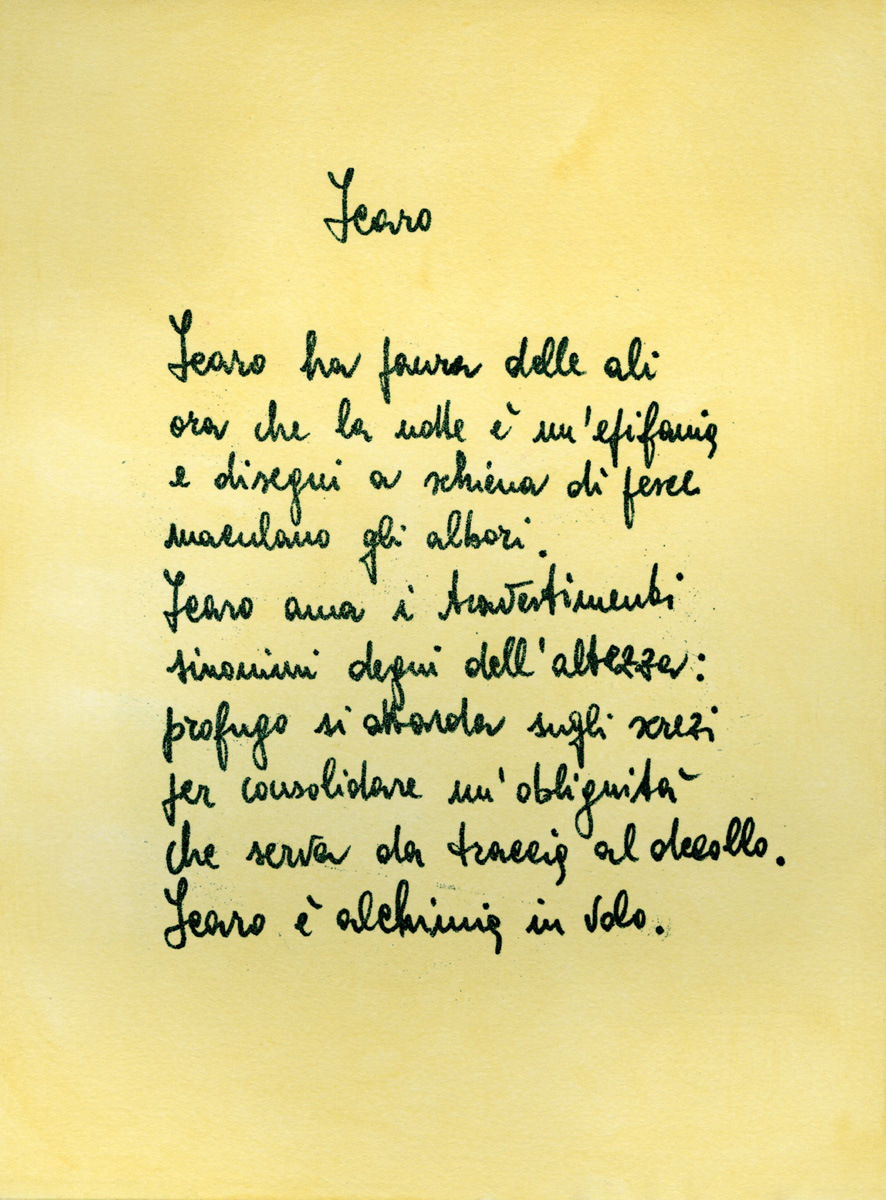 Icaro
Icaro ha paura delle ali
ora che la notte è un'epifania
e disegni a schiena di pesce
maculano gli albori.
Icaro ama i travestimenti
sinonimi degni dell'altezza:
profugo si attarda sugli screzi
per consolidare un'obliquità
che serva da traccia al decollo.
Icaro è alchimia in volo.